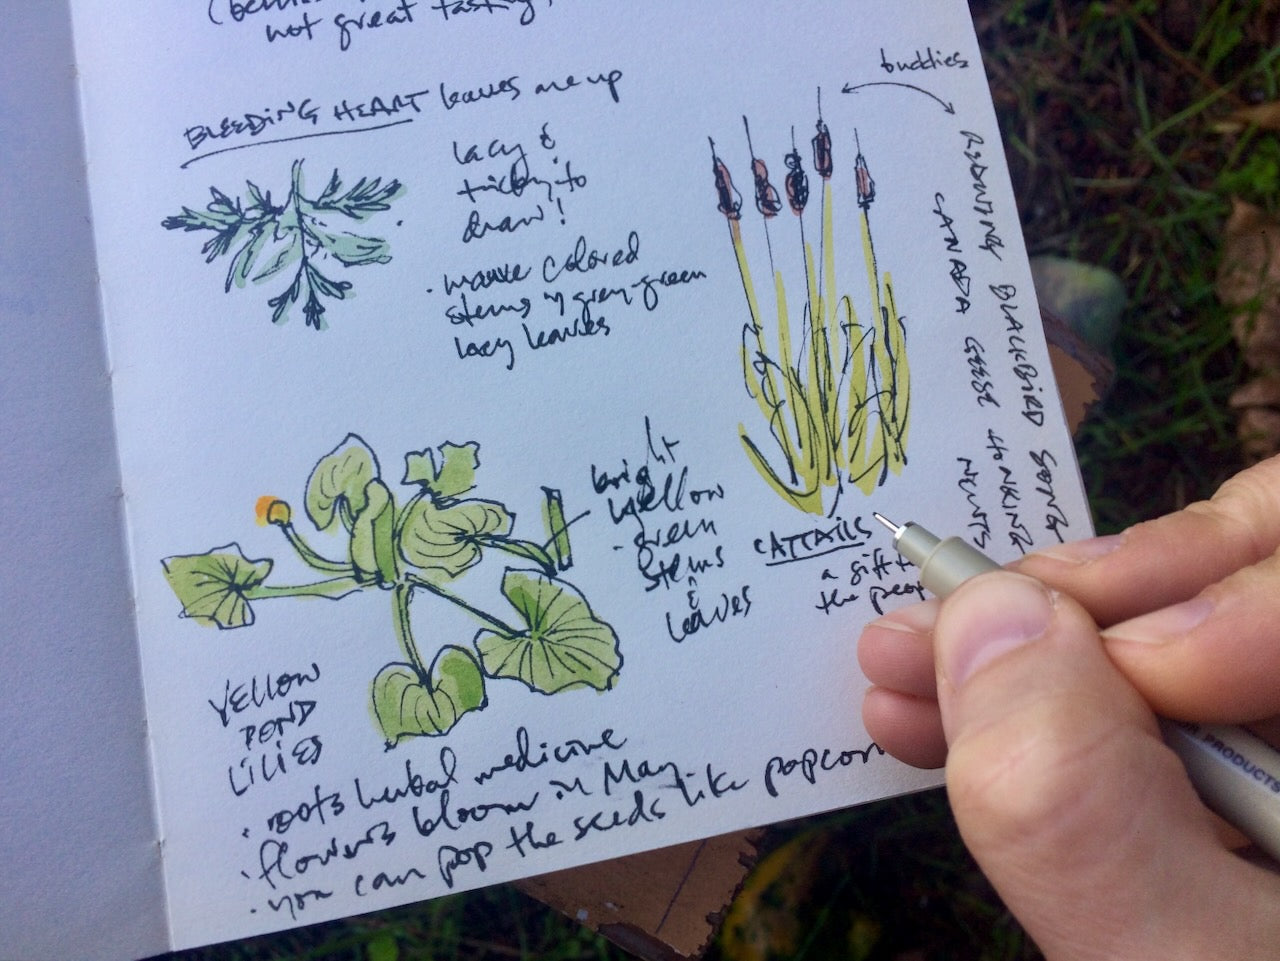 not great tasting)
BLEEDING HEART leaves are up
lacy &
tricky to
draw!
· mauve colored
stems w/ grey-green
lacy leaves
buddies
REDWING BLACKBIRD SONG
CANADA GEESE HONKING
NEWTS
bright
yellow
· green
stems
&
leaves
CATTAILS
a gift
the
YELLOW
POND
LILIES
· roots herbal medicine
· flowers bloom in May
· you can pop the seeds like popcorn
PRODUCTS